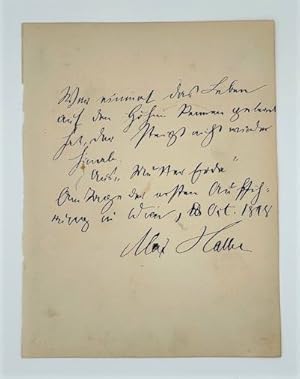 Wer einmal das Leben
auf den Höhen kennen gelernt
hat, der steigt nicht wieder
hinab.
Aus „Mutter Erde“
Am Tage der ersten Auffüh-
rung in Wien, 18 Oct. 1898
Max Halbe